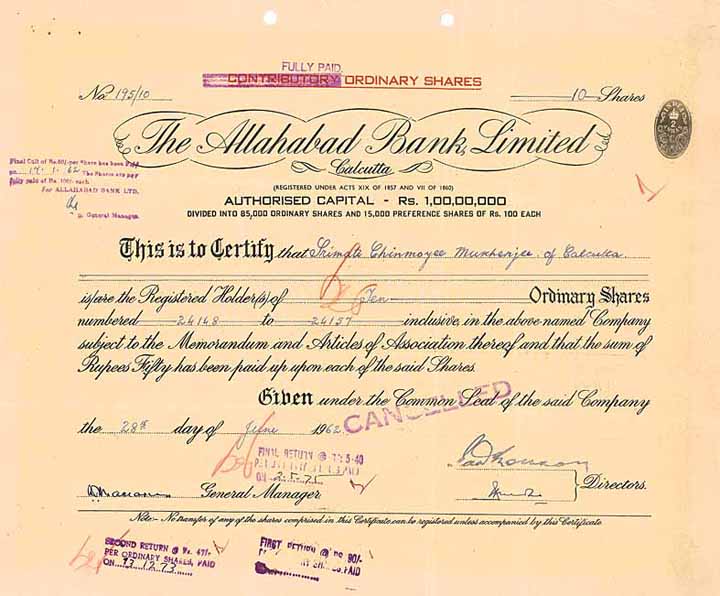 FULLY PAID.
CONTRIBUTORY ORDINARY SHARES
No. 195/10
10 Shares
The Allahabad Bank, Limited
Calcutta
(REGISTERED UNDER ACTS XIX OF 1857 AND VII OF 1860)
AUTHORISED CAPITAL - Rs. 1,00,00,000
DIVIDED INTO 85,000 ORDINARY SHARES AND 15,000 PREFERENCE SHARES OF Rs. 100 EACH
Final Call of Rs.50/- per Share has been Paid
on 17.1.62 The Shares are per
fully paid of Rs. 100/- each
For ALLAHABAD BANK LTD.
General Manager.
This is to Certify that Srimati Chinmoyee Mukherjee of Calcutta
is/are the Registered Holder(s) of Ten Ordinary Shares
numbered 24148 to 24157 inclusive, in the above named Company
subject to the Memorandum and Articles of Association thereof and that the sum of
Rupees Fifty has been paid up upon each of the said Shares.
Given under the Common Seal of the said Company
CANCELLED
the 28th day of June 1962
FINAL RETURN @ 5.40
PAID
ON 2.5.75
General Manager
Directors.
Note:- No transfer of any of the shares comprised in this Certificate can be registered unless accompanied by this Certificate
SECOND RETURN @ Rs. 47/-
PER ORDINARY SHARES, PAID
ON 13.12.73
FIRST RETURN @ RS. 90/-
SHARES, PAID